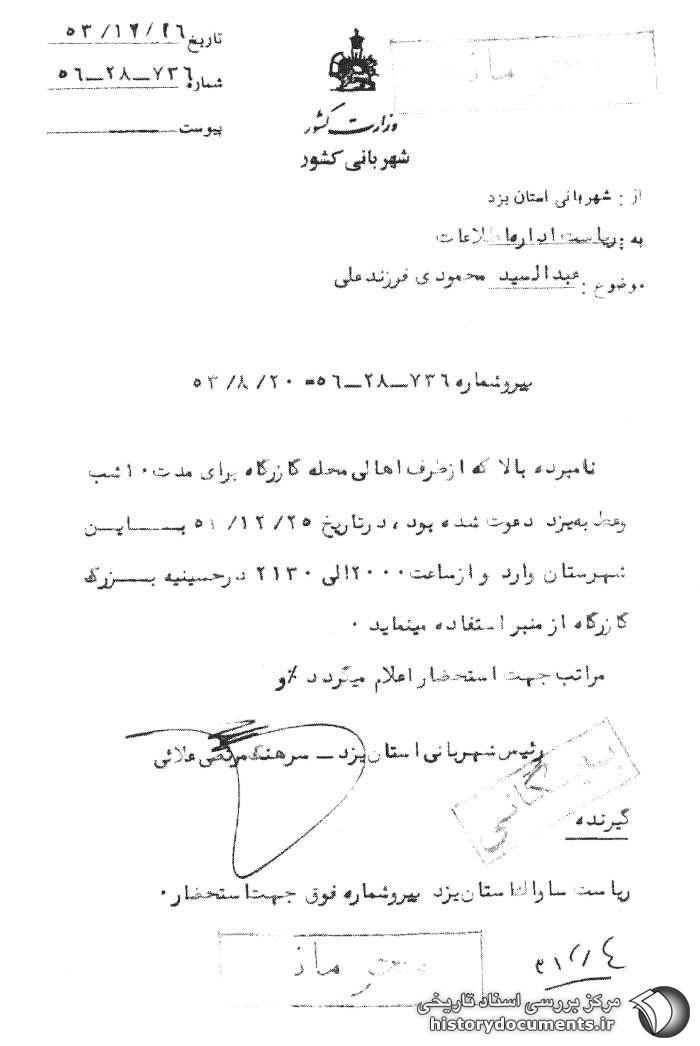 تاریخ ۵۳/۱۲/۲۶
شماره ۷۳۶-۲۸-۵۶
پیوست
محرمانه
وزارت کشور
شهربانی کشور
از : شهربانی استان یزد
به : ریاست اداره اطلاعات
موضوع : عبدالسید محمودی فرزند علی
پیرو شماره ۷۳۶-۲۸-۵۶ = ۵۳/۸/۲۰
نامبرده بالا که از طرف اهالی محله گازرگاه برای مدت ۱۰ شب
وعظ به یزد دعوت شده بود ، در تاریخ ۲۵ /۱۲/ باین
شهرستان وارد و از ساعت ۲۰۰۰ الی ۲۱۳۰ در حسینیه بزرگ
گازرگاه از منبر استفاده مینماید .
مراتب جهت استحضار اعلام میگردد ٪و
رئیس شهربانی استان یزد - سرهنگ مرتضی علائی
بایگانی
گیرنده
ریاست ساواک استان یزد پیرو شماره فوق جهت استحضار .
محرمانه
مرکز بررسی اسناد تاریخی
historydocuments.ir